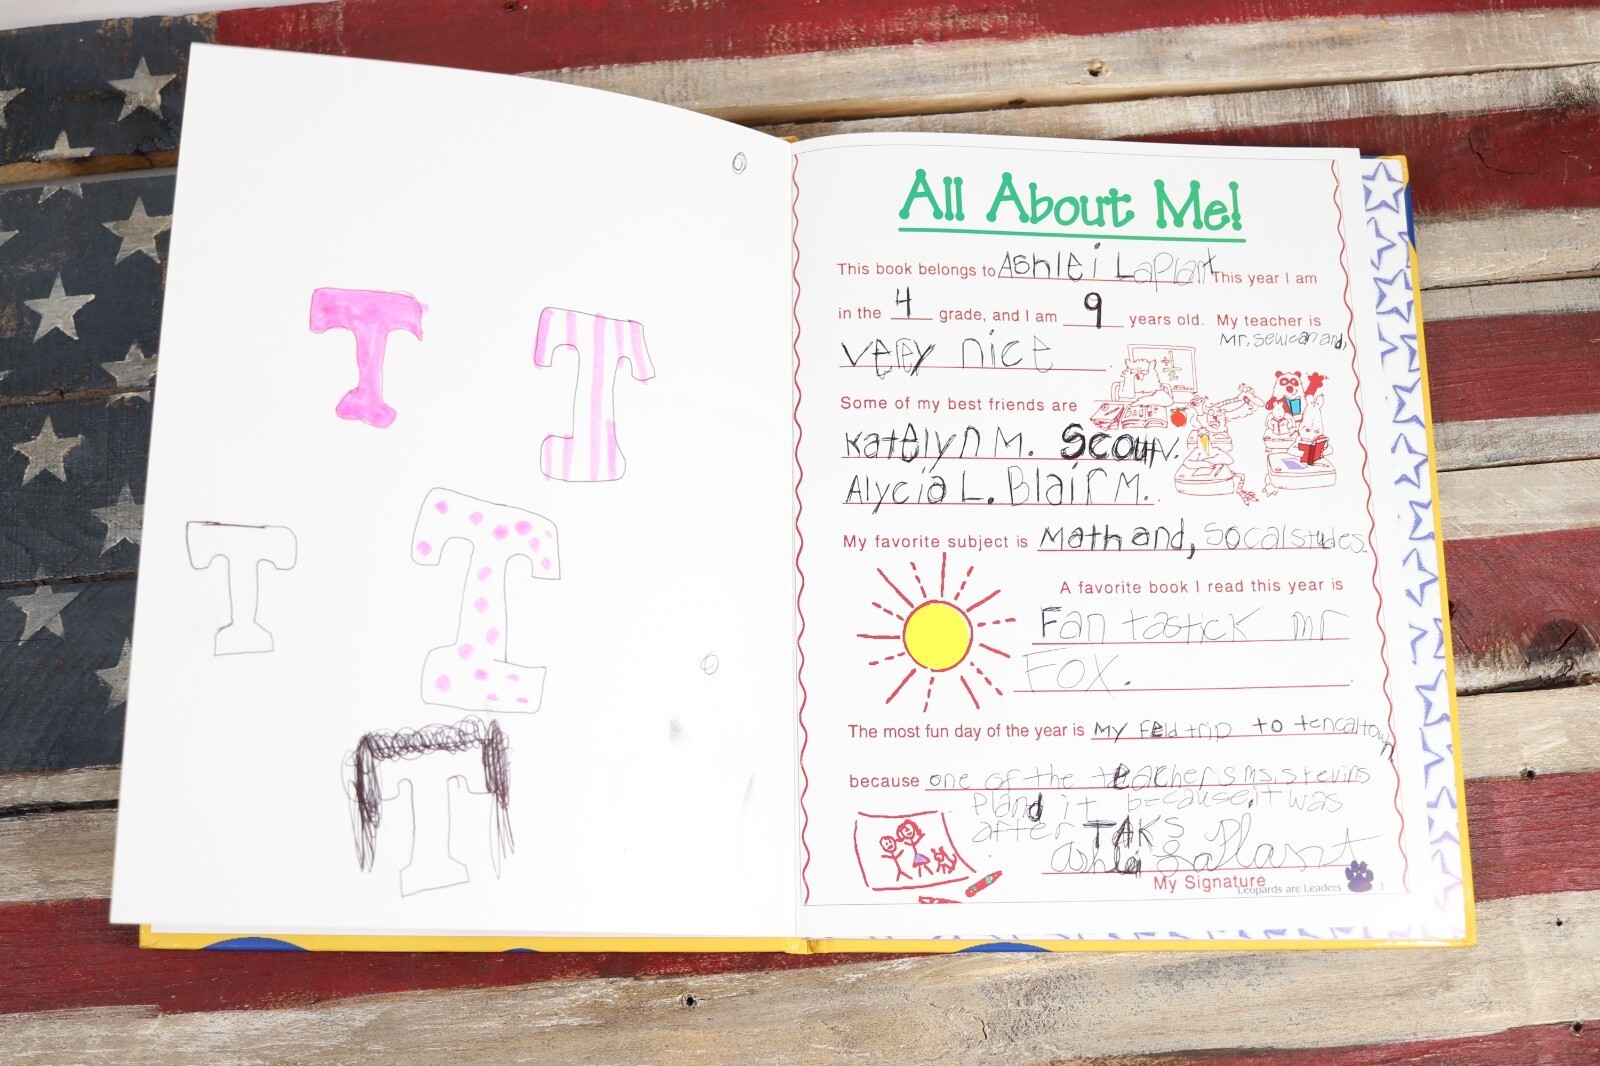 T
T
T
T
T
All About Me!
This book belongs to Ashlei Laplant This year I am
in the 4 grade, and I am 9 years old. My teacher is
Mr. 
very nice
Some of my best friends are
Katelyn M. Scout V.
Alycia L. Blair M.
My favorite subject is Math and, Socalstudes.
A favorite book I read this year is
Fantastick mr
Fox.
The most fun day of the year is My feld trip to tencaltown
because one of the teachers ms. stevins
pland it because, it was
after TAKS
Ashlei Laplant
My Signature
Leopards are Leaders 1